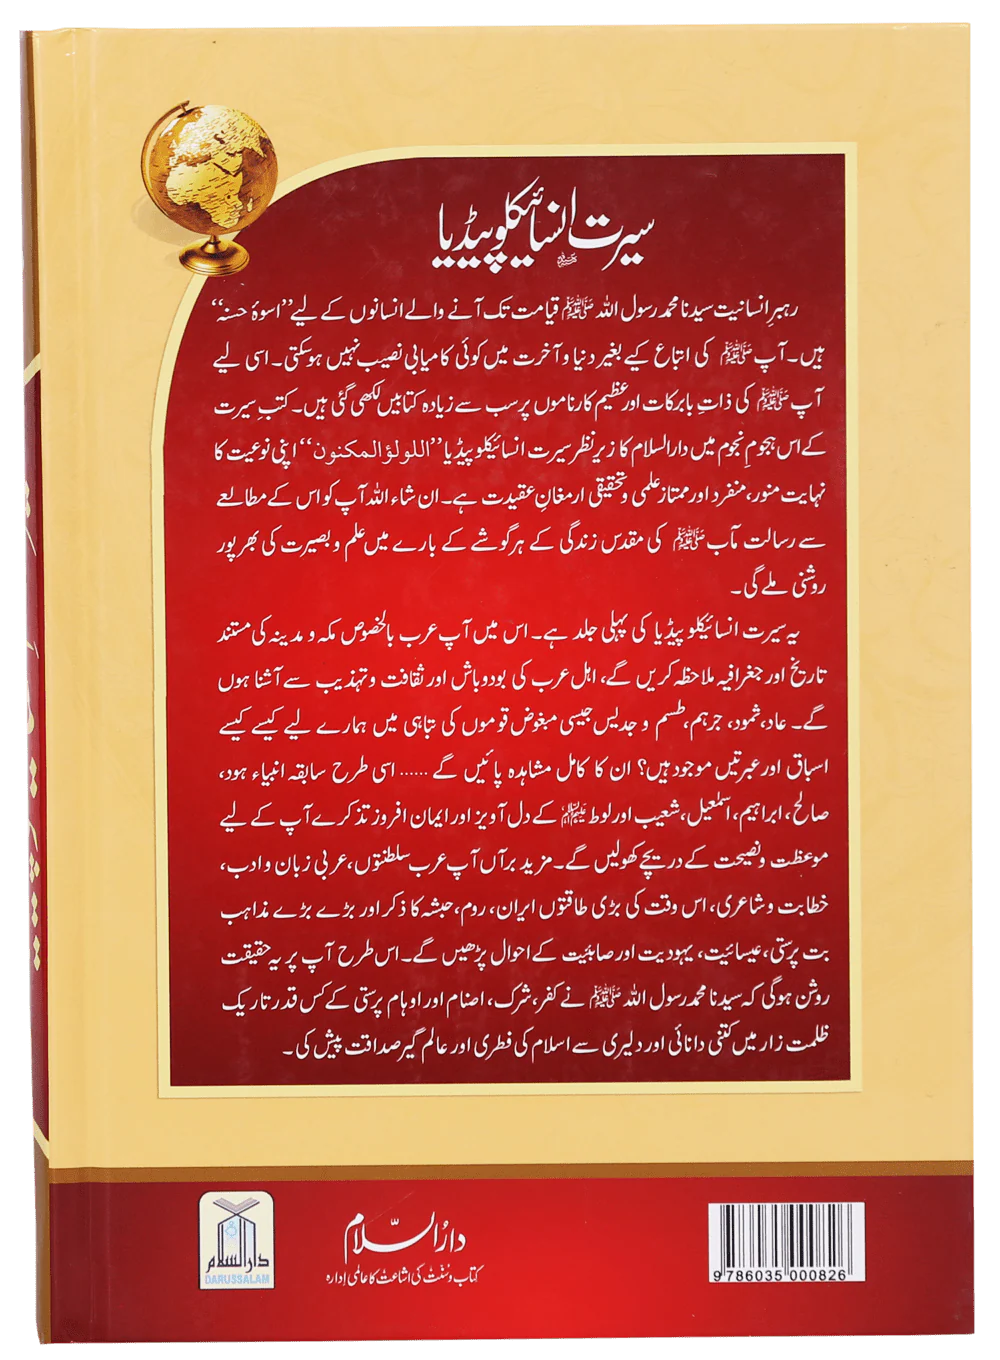 سیرت انسائیکلوپیڈیا
ﷺ
رہبرِ انسانیت سیدنا محمد رسول اللہ ﷺ قیامت تک آنے والے انسانوں کے لیے ’’اسوۂ حسنہ‘‘
ہیں۔ آپ ﷺ کی اتباع کیے بغیر دنیا و آخرت میں کوئی کامیابی نصیب نہیں ہو سکتی۔ اسی لیے
آپ ﷺ کی ذاتِ بابرکات اور عظیم کارناموں پر سب سے زیادہ کتابیں لکھی گئی ہیں۔ کتبِ سیرت
کے اس ہجومِ نجوم میں دارالسلام کا زیرِ نظر سیرت انسائیکلوپیڈیا ’’اللولؤ المکنون‘‘ اپنی نوعیت کا
نہایت منور، منفرد اور ممتاز علمی و تحقیقی ارمغانِ عقیدت ہے۔ ان شاء اللہ آپ کو اس کے مطالعے
سے رسالت مآب ﷺ کی مقدس زندگی کے ہر گوشے کے بارے میں علم و بصیرت کی بھرپور
روشنی ملے گی۔
یہ سیرت انسائیکلوپیڈیا کی پہلی جلد ہے۔ اس میں آپ عرب بالخصوص مکہ و مدینہ کی مستند
تاریخ اور جغرافیہ ملاحظہ کریں گے، اہل عرب کی بودوباش اور ثقافت و تہذیب سے آشنا ہوں
گے۔ عاد، ثمود، جرہم، طسم و جدیس جیسی مبغوض قوموں کی تباہی میں ہمارے لیے کیسے کیسے
اسباق اور عبرتیں موجود ہیں؟ ان کا کامل مشاہدہ پائیں گے ...... اسی طرح سابقہ انبیاء ہود،
صالح، ابراہیم، اسمٰعیل، شعیب اور لوط علیہم السلام کے دل آویز اور ایمان افروز تذکرے آپ کے لیے
موعظت و نصیحت کے دریچے کھولیں گے۔ مزید برآں آپ عرب سلطنتوں، عربی زبان و ادب،
خطابت و شاعری، اس وقت کی بڑی طاقتوں ایران، روم، حبشہ کا ذکر اور بڑے بڑے مذاہب
بت پرستی، عیسائیت، یہودیت اور صابئیت کے احوال پڑھیں گے۔ اس طرح آپ پر یہ حقیقت
روشن ہوگی کہ سیدنا محمد رسول اللہ ﷺ نے کفر، شرک، اصنام اور اوہام پرستی کے کس قدر تاریک
ظلمت زار میں کتنی دانائی اور دلیری سے اسلام کی فطری اور عالم گیر صداقت پیش کی۔
دارُالسّلام
کتاب و سُنّت کی اشاعت کا عالمی ادارہ
دارالسلام
DARUSSALAM
9 786035 000826